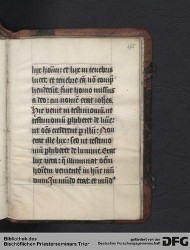 lux hominu: et lux in tenebris
lucet: et tenebre eā nō compre
henderūt. fuit homo missus
a deo: cui nomē erat iohēs.
Hic venit in testimoniū. ut
testimoniū phiberet de lumie:
ut oēs crederēt p illū: Non
erat ille lux: sed ut testimo
niū phiberet de lumine. Erat
lux vera: q̄ illuminat oēm
hoīem veniētē in hūc mū
dum. In mūdo erat: et mūdᵘˢ
Bibliothek des
Bischöflichen Priesterseminars Trier
gefördert von der
Deutschen Forschungsgemeinschaft
DFG